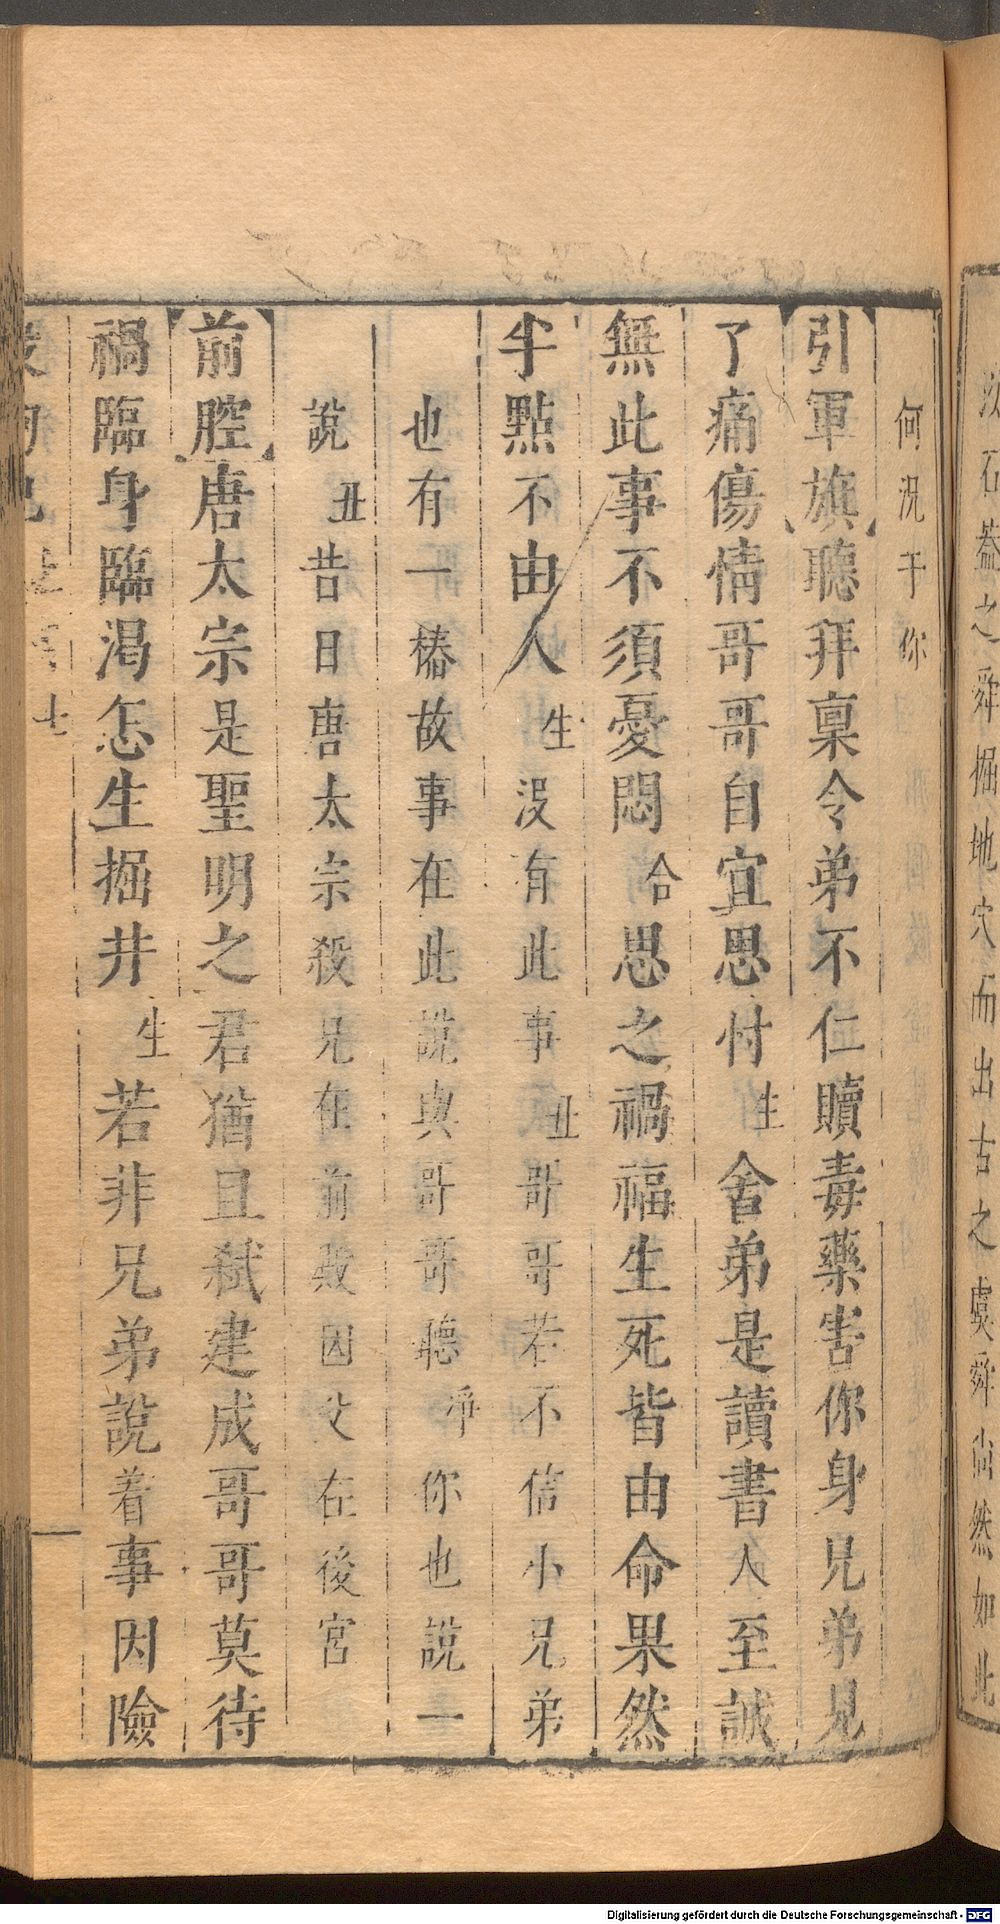 汝石葢之舜掘地穴而出古之虞舜尚然如此
何況于你
引軍旗聽拜稟令弟不仁贖毒藥害你身兄弟見
了痛傷情哥哥自宜思忖生舍弟是讀書人至誠
無此事不須憂悶合思之禍福生死皆由命果然
半點不由人生没有此事丑哥哥若不信小兄弟
也有一樁故事在此説與哥哥聽淨你也説一
説丑昔日唐太宗殺兄在前殿囚父在後宮
前腔唐太宗是聖明之君猶且弑建成哥哥莫待
禍臨身臨渴怎生掘井生若非兄弟説着事因險
Digitalisierung gefördert durch die Deutsche Forschungsgemeinschaft - DFG